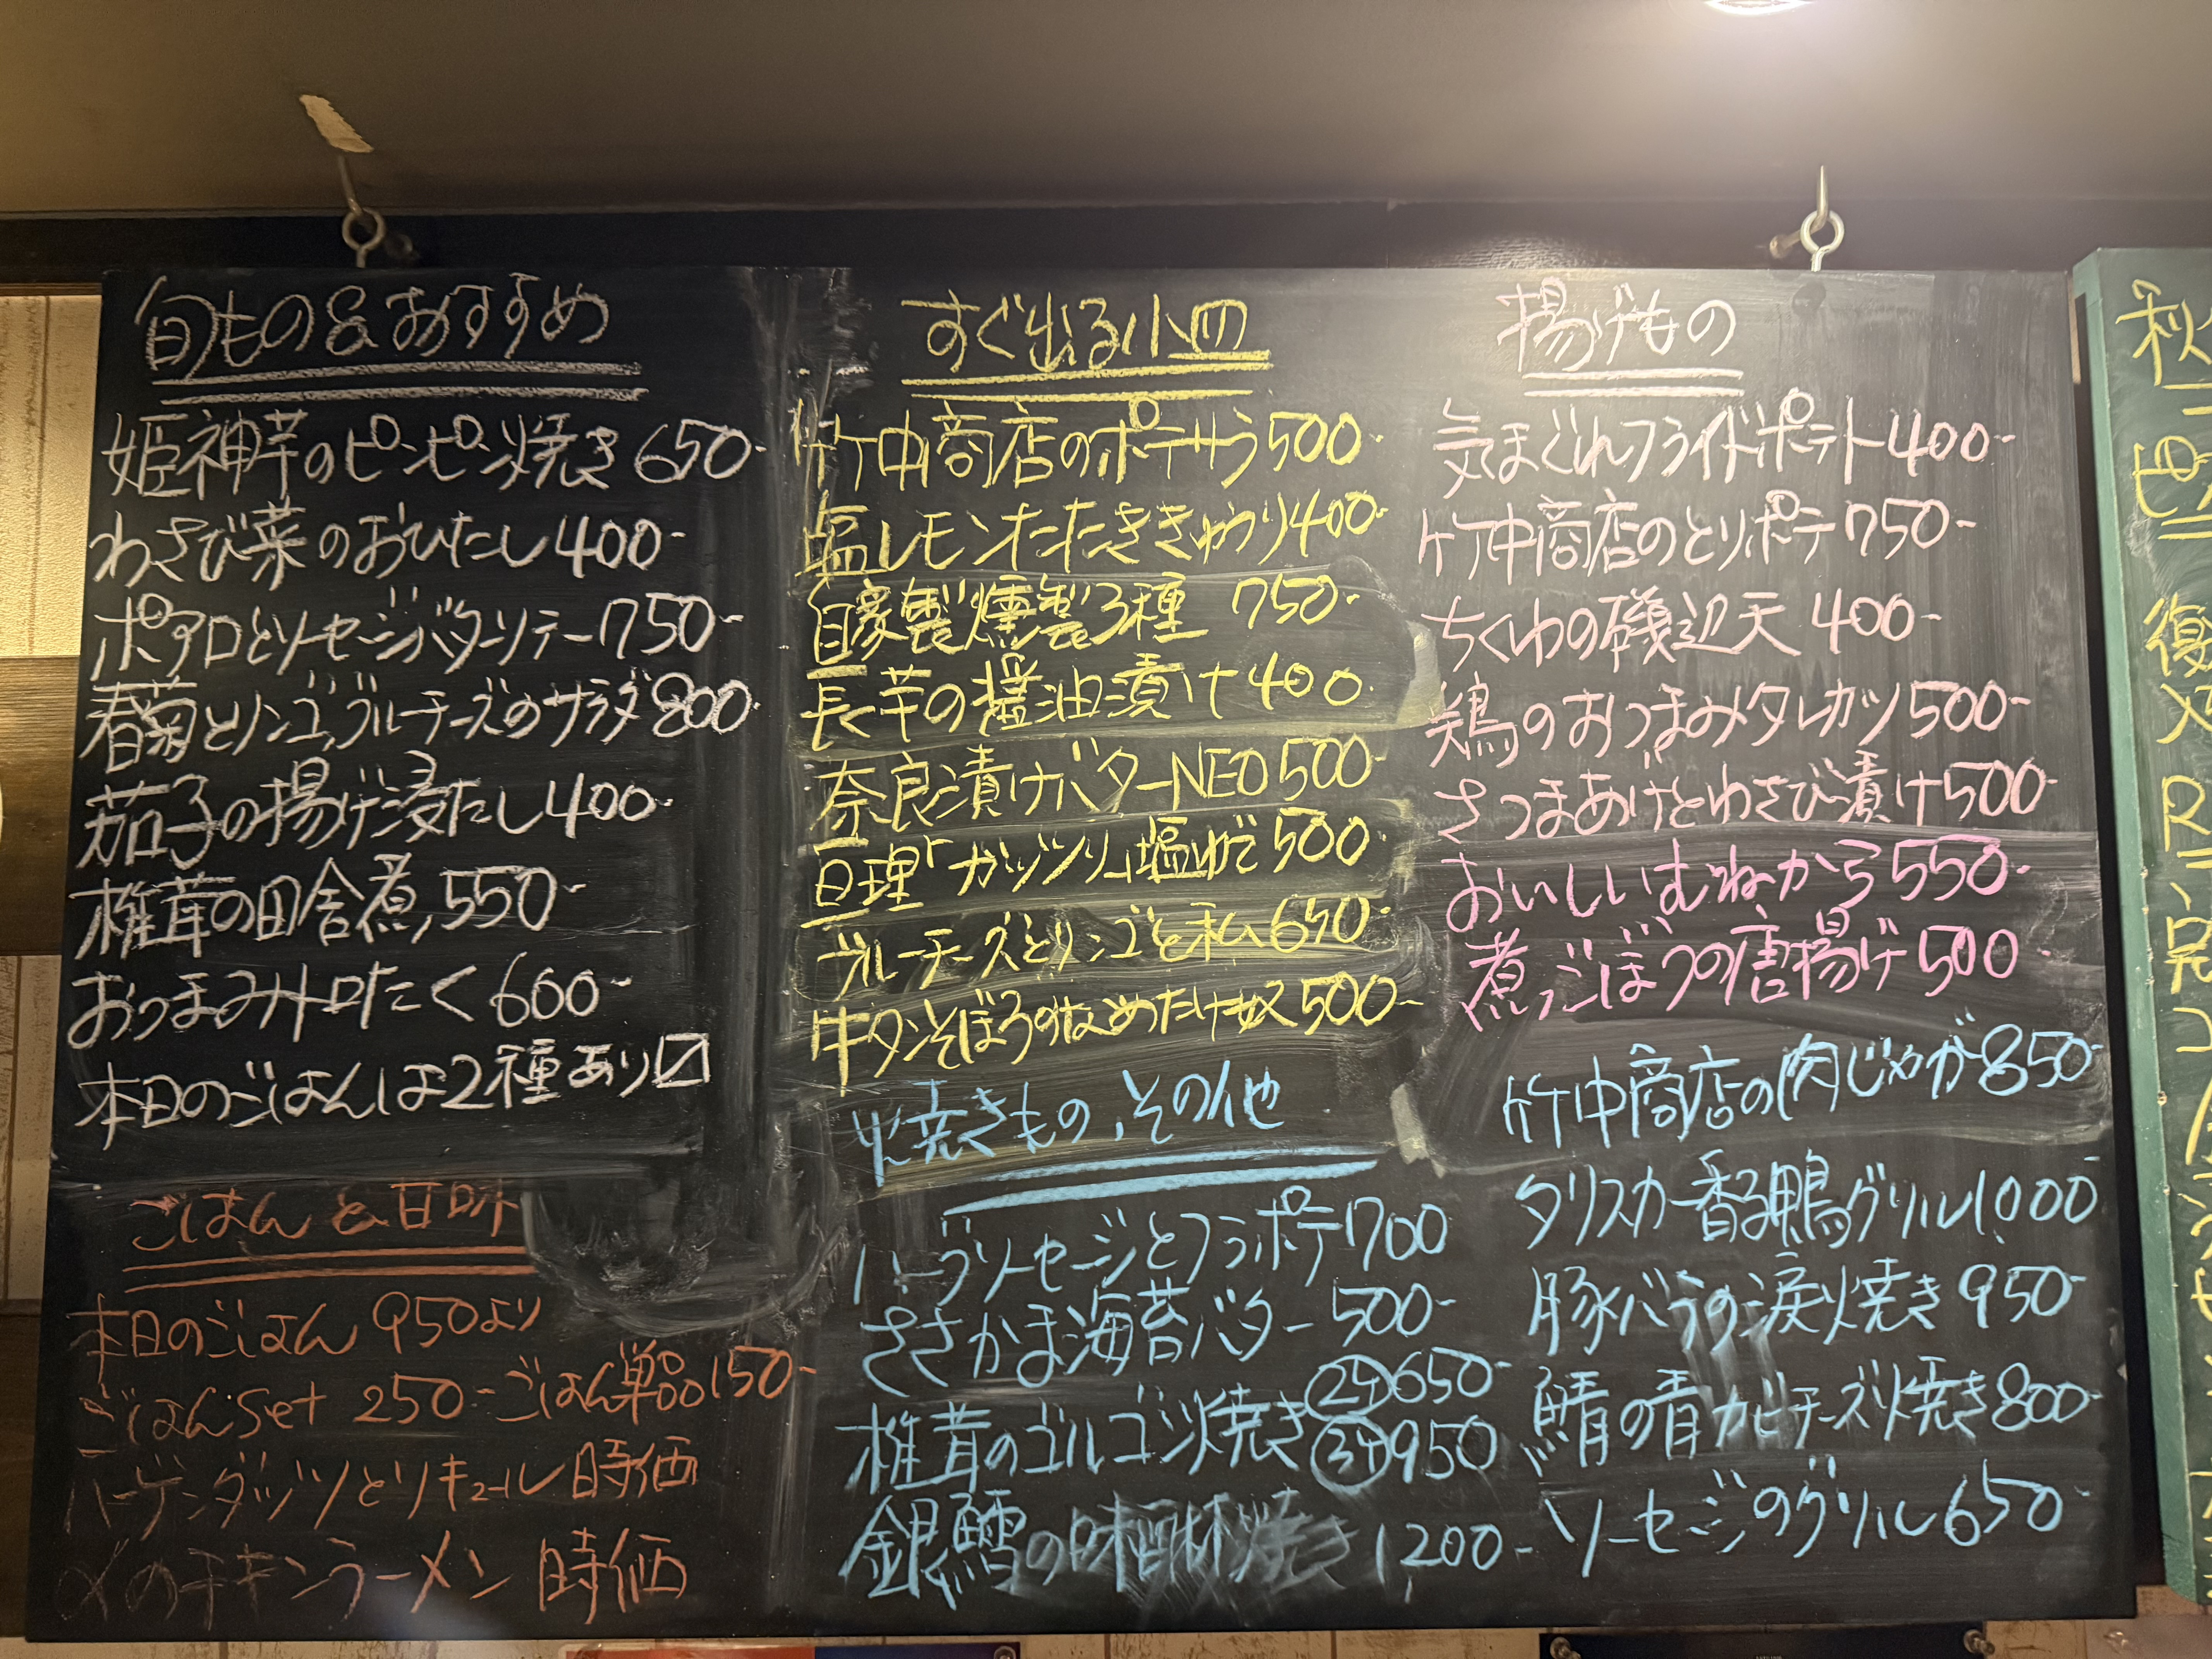 旬もの&おすすめ
姫神芋のピンピン焼き 650-
わさび菜のおひたし 400-
ポアロとソーセージバターソテー 750-
春菊とリンゴ、ブルーチーズのサラダ 800-
茄子の揚げ浸たし 400-
椎茸の田舎煮 550-
おつまみトロたく 600-
本日のごはんは2種あり〼
ごはんと甘味
本日のごはん 950より
ごはんset 250-ごはん単品150-
ハーゲンダッツとリキュール 時価
〆のチキンラーメン 時価
すぐ出る小皿
竹中商店のポテサラ 500-
塩レモンたたききゅうり 400-
自家製燻製3種 750-
長芋の醤油漬け 400
奈良漬けバターNEO 500-
亘理「ガッツリ」塩ゆで 500-
ブルーチーズとリンゴと私 650-
牛タンそぼろのなめたけ奴 500-
焼きもの、その他
ハーブソーセージとフラポテ 700
ささかま海苔バター 500-
椎茸のゴルゴン焼き ②ヶ650-
③ヶ950
銀鱈の味醂焼き 1200-
揚げもの
気まぐれフライドポテト 400-
竹中商店のとりポテ 750-
ちくわの磯辺天 400-
鶏のおつまみタレカツ 500-
さつまあげとわさび漬け 500-
おいしいむねから 550-
煮ごぼうの唐揚げ 500
竹中商店の肉じゃが 850-
タリスカー香る鴨グリル 1000
豚バラの涙焼き 950-
鯖の青カビチーズ焼き 800-
ソーセージのグリル 650-